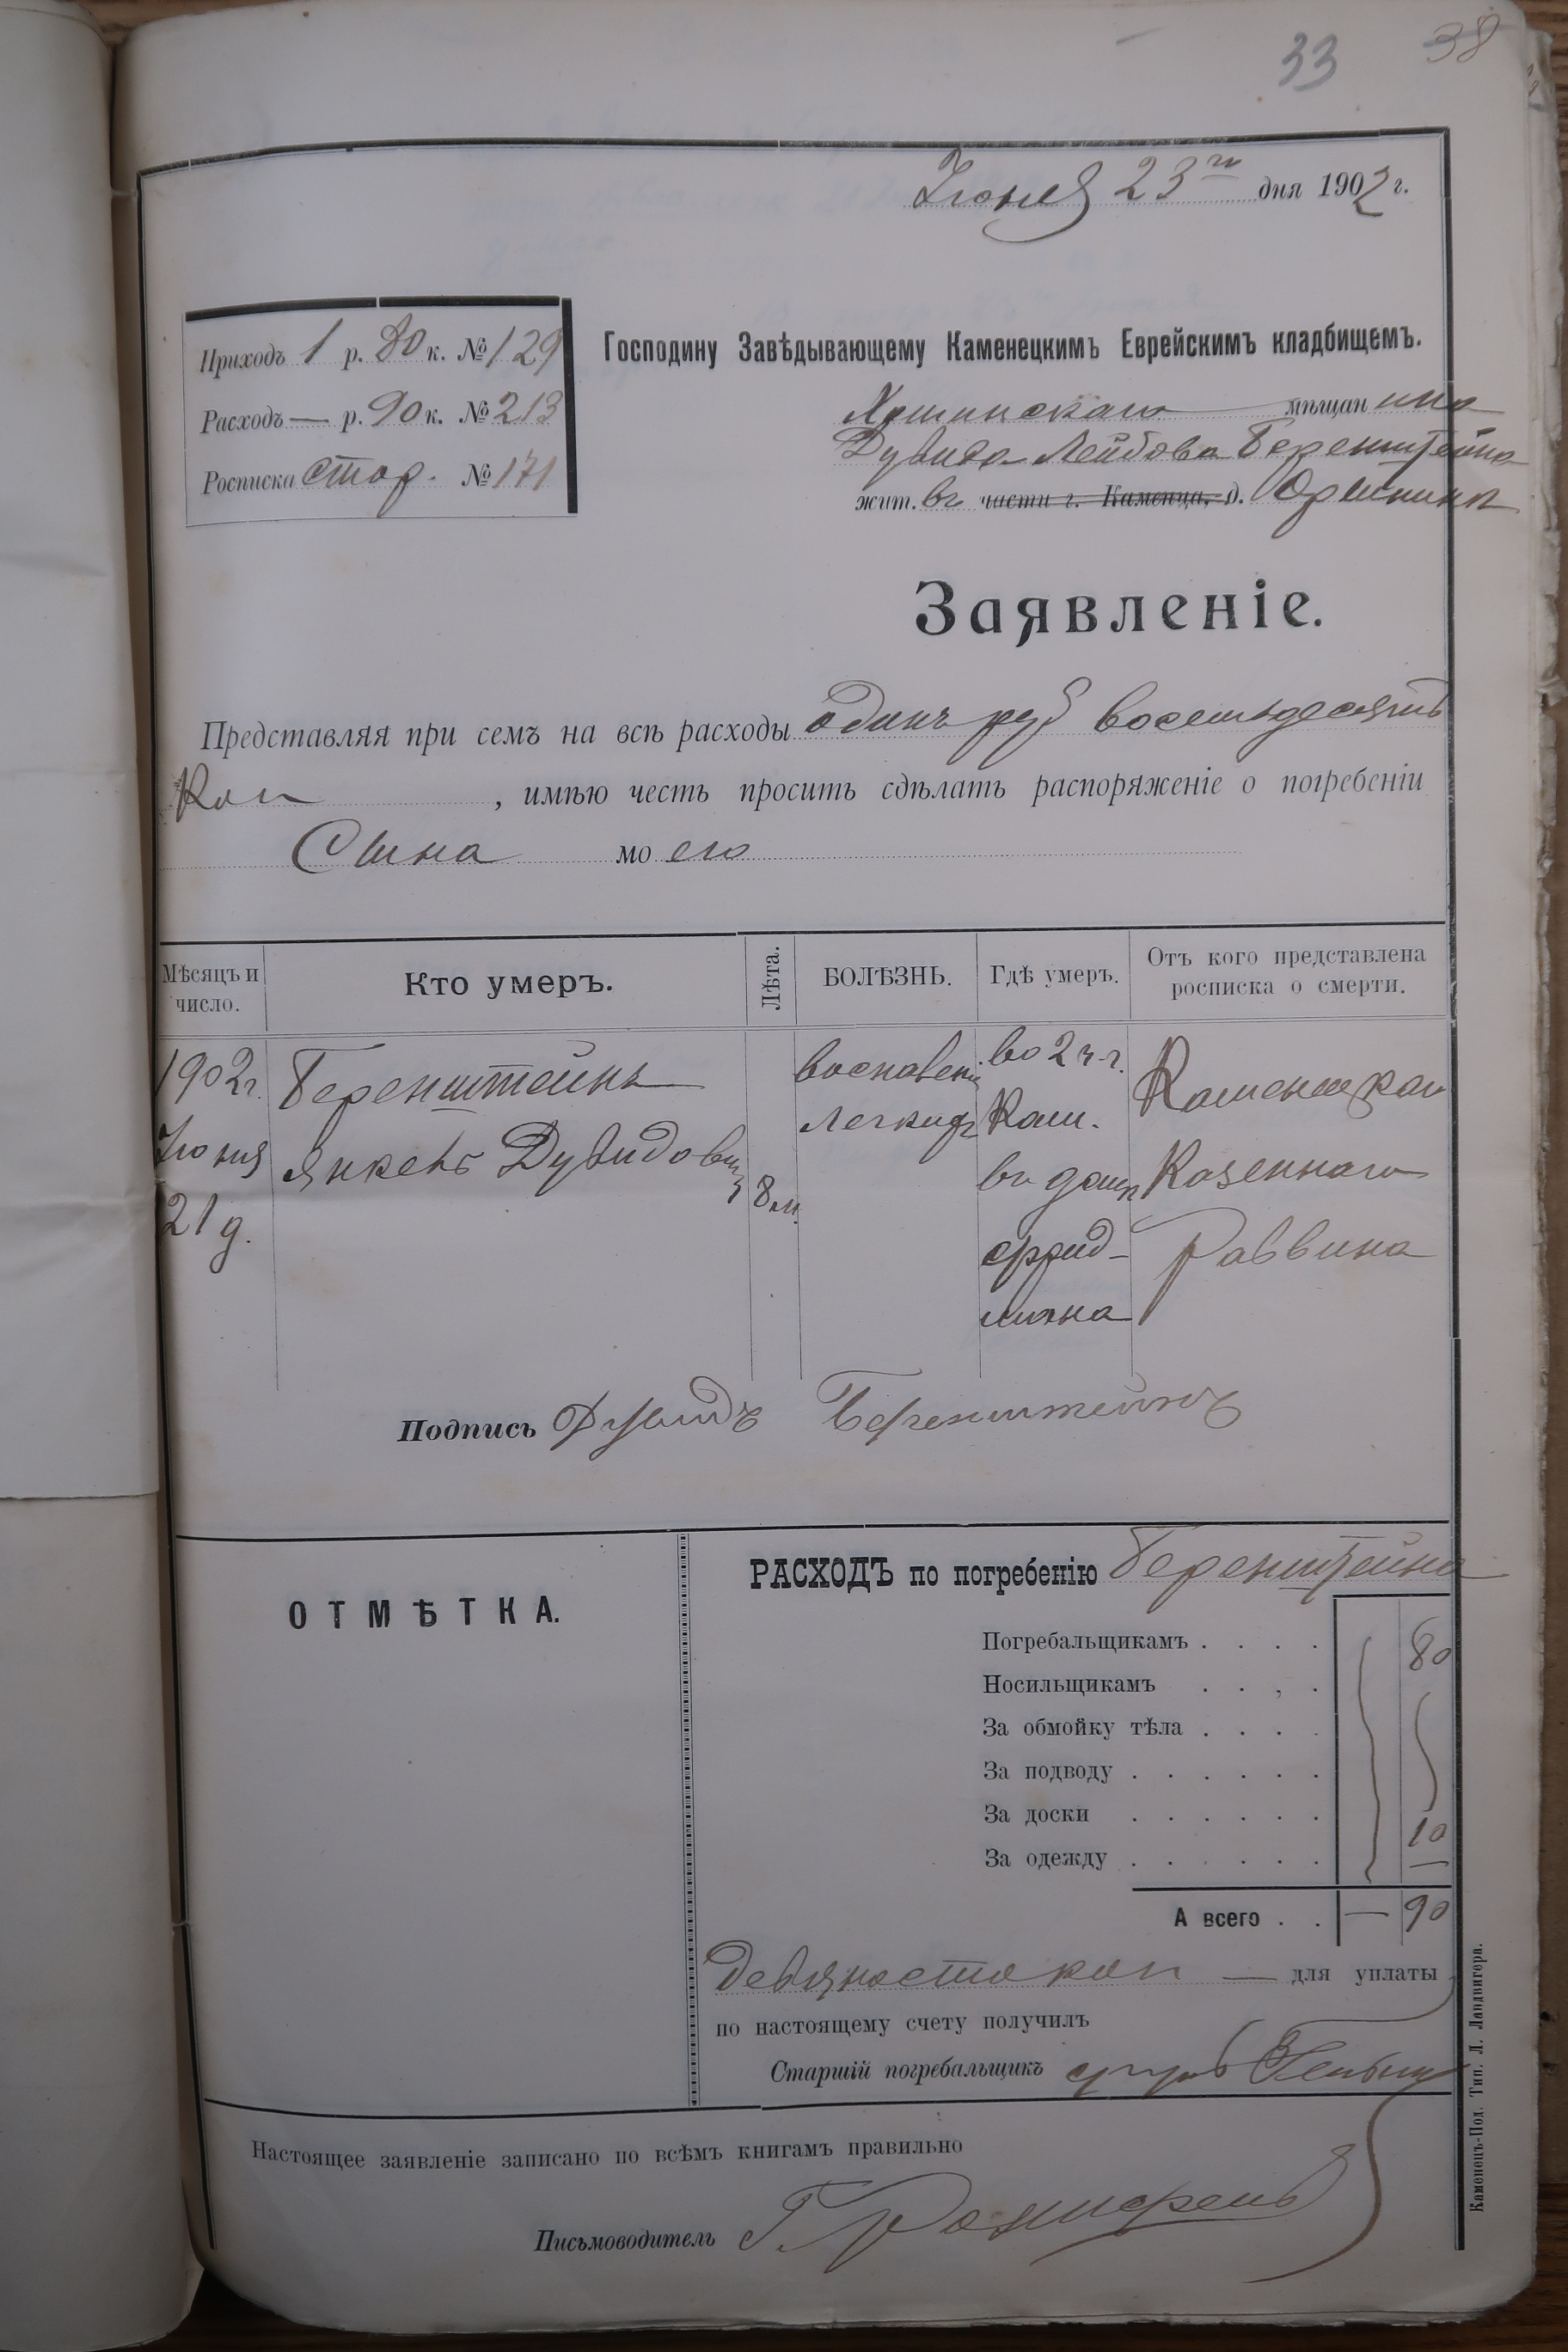 33 38
Іюня 23го дня 1902 г.
Приходъ 1 р. 80 к. № 129
Расходъ — р. 90 к. № 213
Росписка стор. № 171
Господину Завѣдывающему Каменецкимъ Еврейскимъ кладбищемъ.
мѣщанина
Дувида Лейбова Беренштейна
жит. въ части г. Каменца, д. Оринина
Заявленіе.
Представляя при семъ на всѣ расходы одинъ руб восемьдесятъ
Коп , имѣю честь просить сдѣлать распоряженіе о погребеніи
Сына моего
Мѣсяцъ и число.
Кто умеръ.
Лѣта.
БОЛѢЗНЬ.
Гдѣ умеръ.
Отъ кого представлена росписка о смерти.
1902 г.
Іюня
21 д.
Беренштейнъ
Янкель Дувидовичъ
8 м.
легкихъ
во 2 ч. г.
Кам.
въ домѣ
Фрид-
мана
Казеннаго
Раввина
Подпись Дувидъ Беренштейнъ
ОТМѢТКА.
РАСХОДЪ по погребенію Беренштейна
Погребальщикамъ . . . . 80
Носильщикамъ . . , .
За обмойку тѣла . . . .
За подводу . . . . . .
За доски . . . . . . 10
За одежду . . . . . . —
А всего . . — 90
Девяносто коп — для уплаты
по настоящему счету получилъ
Старшій погребальщикъ
Настоящее заявленіе записано по всѣмъ книгамъ правильно
Письмоводитель
Каменецъ-Под. Тип. Л. Ландвигера.